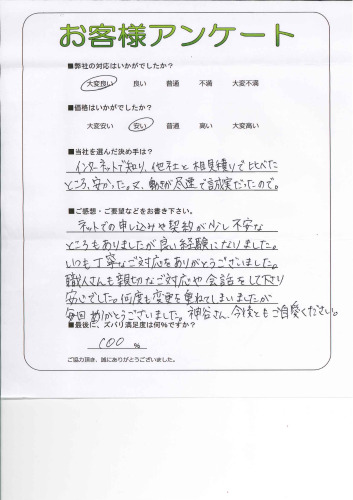 お客様アンケート
■弊社の対応はいかがでしたか?
大変良い 良い 普通 不満 大変不満
■価格はいかがでしたか?
大変安い 安い 普通 高い 大変高い
■当社を選んだ決め手は?
インターネットで知り、他社と相見積りで比べた
ところ、安かった。又、動きが迅速で誠実だったので。
■ご感想・ご要望などをお書き下さい。
ネットでの申し込みや契約が少し不安な
ところもありましたが良い経験になりました。
いつも丁寧なご対応をありがとうございました。
職人さんも親切なご対応や会話をして下さり
安心でした。何度も変更を重ねてしまいましたが
毎回ありがとうございました。神谷さん、今後ともご自愛ください。
■最後に、ズバリ満足度は何%ですか?
100 %
ご協力頂き、誠にありがとうございました。